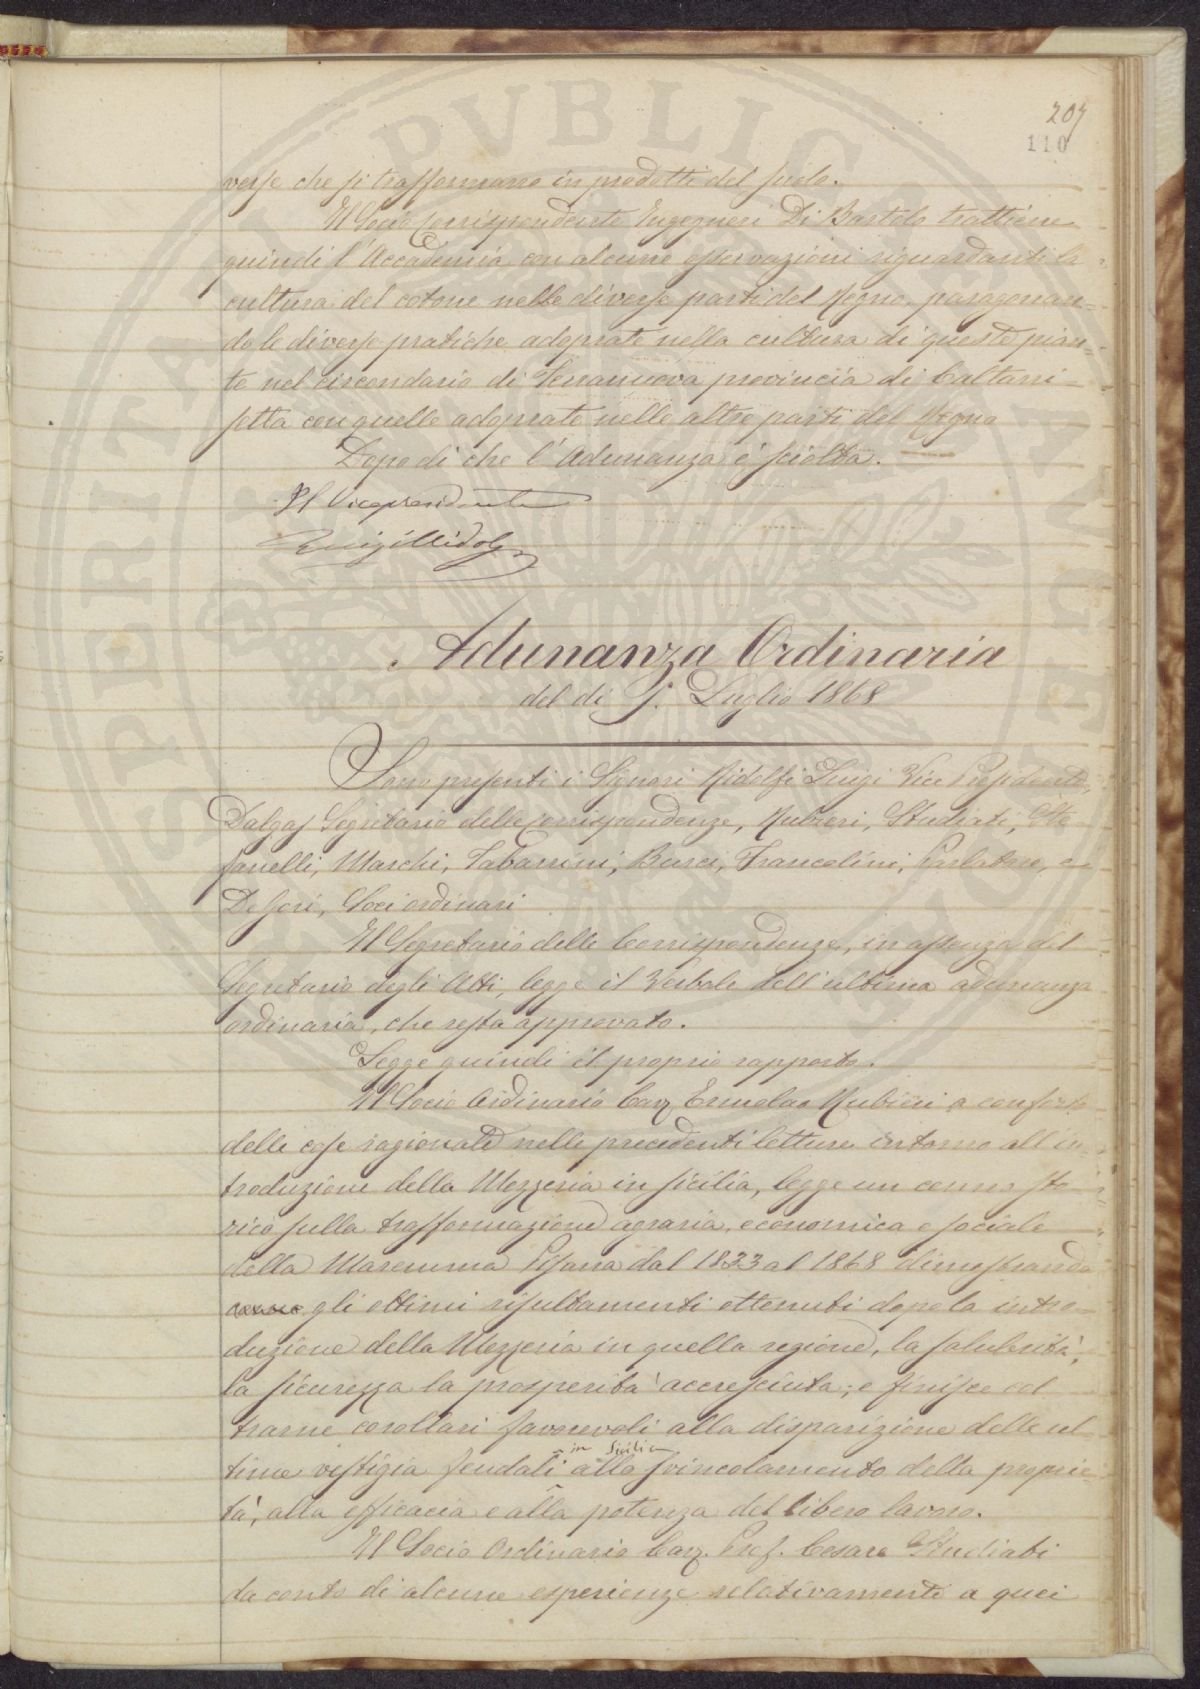 207
110
verse che si trasformano in prodotti del suolo.
Il Socio Corrispondente Ingegnere Di Bartolo trattiene
quindi l'Accademia con alcune osservazioni riguardanti la
cultura del cotone nelle diverse parti del Regno, paragonan-
do le diverse pratiche adoprate nella cultura di queste pian-
te nel circondario di Terranuova provincia di Caltani-
setta con quelle adoprate nelle altre parti del Regno
Dopo di che l'Adunanza è sciolta.
Il Vicepresidente
Luigi Ridolfi
Adunanza Ordinaria
del dì 5. Luglio 1868
Sono presenti i Signori Ridolfi Luigi Vice Presidente,
Dalgas Segretario delle Corrispondenze, Rubieri, Studiati, Ste-
fanelli, Marchi, Tabarrini, Burci, Francolini, Parlatore, e
De Gori, Soci ordinari
Il Segretario delle Corrispondenze, in assenza del
Segretario degli Atti, legge il Verbale dell'ultima adunanza
ordinaria, che resta approvato.
Legge quindi il proprio rapporto.
Il Socio Ordinario Cav. Ermolao Rubieri a conforto
delle cose ragionate nelle precedenti letture intorno all'in-
troduzione della Mezzeria in Sicilia, legge un cenno sto-
rico sulla trasformazione agraria, economica e sociale
della Maremma Pisana dal 1833 al 1868 dimostrando
come gli ottimi risultamenti ottenuti dopo la intro-
duzione della Mezzeria in quella regione, la salubrità,
la sicurezza la prosperità accresciuta; e finisce col
trarne corollari favorevoli alla disparizione delle ul-
time vestigia feudali in Sicilia allo svincolamento della proprie-
tà, alla efficacia e alla potenza del libero lavoro.
Il Socio Ordinario Cav. Prof. Cesare Studiati
da conto di alcune esperienze relativamente a quei